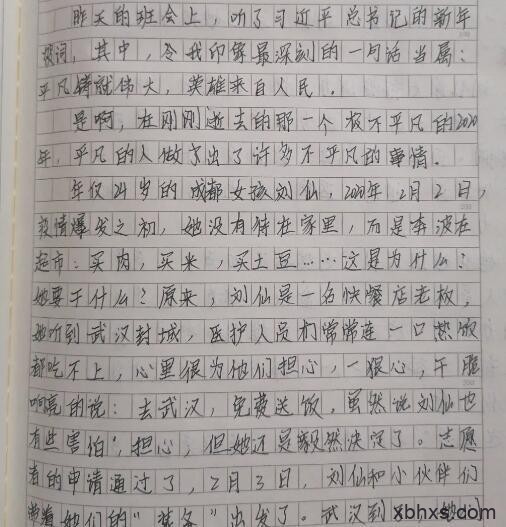 昨天的班会上，听了习近平总书记的新年
贺词，其中，令我印象最深刻的一句话当属：
平凡铸就伟大，英雄来自人民．
是啊，在刚刚逝去的那一个极不平凡的2020
年，平凡的人做了出了许多不平凡的事情。
年仅24岁的成都女孩刘仙，2020年，2月2日，
疫情爆发之初，她没有待在家里，而是奔波在
超市：买肉，买米，买土豆……这是为什么？
她要干什么？原来，刘仙是一名快餐店老板，
她听到武汉封城，医护人员们常常连一口热饭
都吃不上，心里很为他们担心，一狠心，干脆
响亮的说：去武汉，免费送饭，虽然说刘仙也
有些害怕，担心，但她还是毅然决定了。志愿
者的申请通过了，2月3日，刘仙和小伙伴们
带着她们的"装备"出发了。武汉到
xbhxs.com